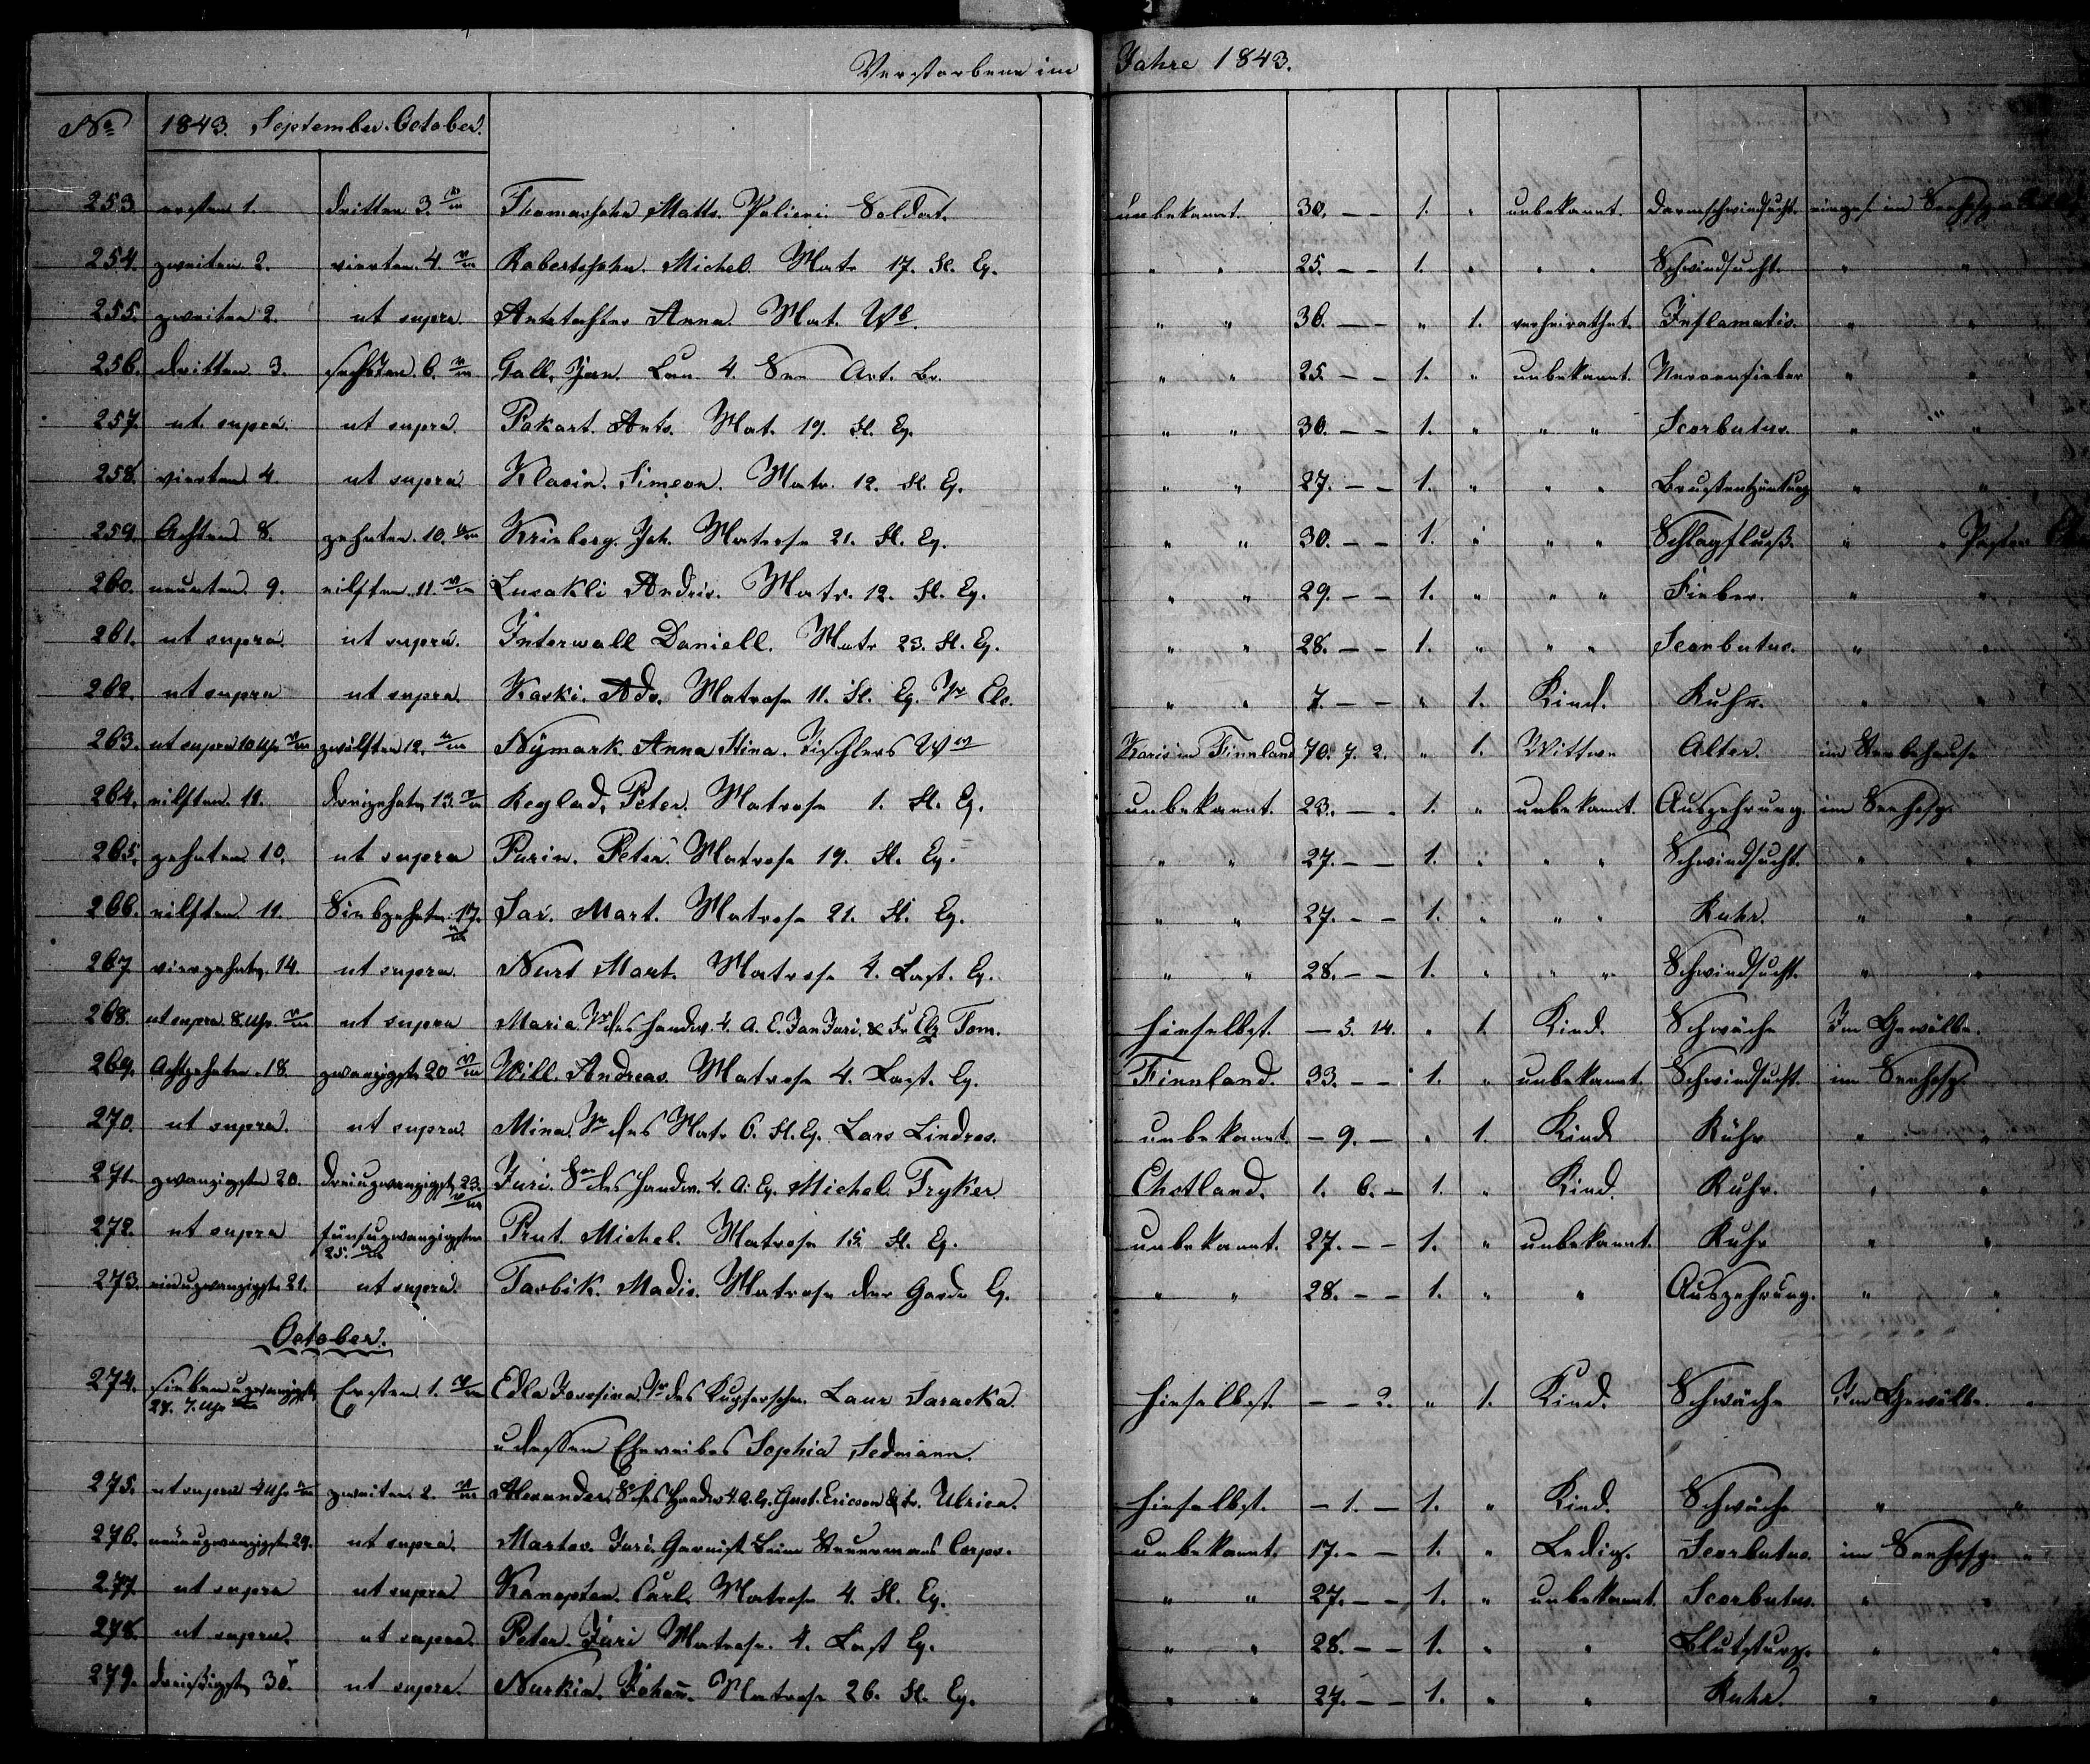 Verstorbene im Jahre 1843.
No 1843. September. October.
253. ersten 1. dritten 3. Thomassohn Matts. Soldat. unbekannt. 30. – – 1. " unbekannt. Darmschwindsucht. im Seehosp.
254. zweiten 2. vierten 4. Robertssohn. Michel. Matr 17. Fl. Eq. " " 25. – – 1. " " " Schwindsucht. " "
255. zweiten 2. ut supra. Anna. Mat. Wb. " " 36. – – " 1. verheirathet. Inflamatio. " "
256. dritten 3. sechsten 6. Gall, Jan. 4. See Art. Br. " " 25. – – 1. " unbekannt. Nervenfieber " "
257. ut supra. ut supra. Pakart. Ants. Mat. 19. Fl. Eq. " " 30. – – 1. " " " Scorbutus. " "
258. vierten 4. ut supra. Klasin. Simeon. Matr. 12. Fl. Eq. " " 27. – – 1. " " " Brustentzüntung " "
259. Achten 8. zehnten. 10. Krinberg. Joh. Matrose 21. Fl. Eq. " " 30. – – 1. " " " Schlagfluß. " " Pastor
260. neunten 9. eilften. 11. Lusakli Andris. Matr. 12. Fl. Eq. " " 29. – – 1. " " " Fieber. " "
261. ut supra. ut supra. Interwall Daniell. Matr 23. Fl. Eq. " " 28. – – 1. " " " Scorbutus. " "
262. ut supra ut supra. Kaski. Ado. Matrose 11. Fl. Eq. Tr Els. " " 7. – – " 1. Kind. Ruhr. " "
263. ut supra 10 Uhr zwölften 12. Nymark. Anna Stina. Tischlers Karis in Finnland 70. 7. 2. " 1. Wittwe Alter. im Sterbehause
264. eilften. 11. dreizehnten 13. Reglad, Peter. Matrose 1. Fl. Eq. unbekannt. 23. – – 1. " unbekannt. Auszehrung. im Seehosp.
265. zehnten 10. ut supra Parin. Peter. Matrose 19. Fl. Eq. " " 27. – – 1. " " " Schwindsucht. " "
266. eilften 11. Siebzehnten 17. Sar. Mart. Matrose 21. Fl. Eq. " " 27. – – 1. " " " Ruhr. " "
267 vierzehnten. 14. ut supra. Nurt Mart. Matrose 4. Last. Eq. " " 28. – – 1. " " " Schwindsucht. " "
268. ut supra. 8. Uhr ut supra Maria Tr des Handw. 4. A. E. Jan Juri. & Fr Elz Tom. hieselbst. – 5. 14. " 1. Kind. Schwäche Im Gewölbe.
269. Achtzehnten. 18. zwanzigsten 20 Will. Andreas. Matrose 4. Last. Eq. Finnland. 33. – – 1. " unbekannt. Schwindsucht. im Seehosp.
270. ut supra. ut supra. Mina. Tr des Matr 6. Fl. Eq. Lars Lindros. unbekannt. – 9. – " 1. Kind Ruhr " "
271. zwanzigsten 20. dreiuzwanzigst. 23. Juri. Sn des Handw. 4. A. Eq. Michel. Tryker Ehstland. 1. 6. – 1. " Kind. Ruhr. " "
272. ut supra fünfuzwanzigsten 25. Prut. Michel. Matrose 15. Fl. Eq. unbekannt. 27. – – 1. " unbekannt. Ruhr " "
273. einuzwanzigsten 21. ut supra. Tarbik. Madis. Matrose der Garde Eq. " " 28. – – 1. " " Auszehrung. " "
October.
274. siebenuzwanzigst. 27. 7. Uhr Ersten 1. Edla Josefina Tr des Kupferschm. Laur Saracka hieselbst. – – 2. " 1. Kind. Schwäche Im Gewölbe.
u dessen Eheweibes Sophia Sedmann.
275. ut supra 4 Uhr zweiten 2. Alexander. Sn des Handw. 4. A. Eq. Gust. Ericson & Fr. Ulrica. hieselbst. – 1. – 1. " Kind. Schwäche " "
276. neunuzwanzigst. 29. ut supra. Martov. Juri. beim Steuermans Corps. unbekannt. 17. – – 1. " Ledig. Scorbutus. im Seehosp.
277. ut supra ut supra. Kanopten. Carl. Matrose 4. Fl. Eq. " " 27. – – 1. " unbekannt. Scorbutus. " "
278. ut supra. ut supra. Peter. Juri Matrose. 4. Last Eq. " " 28. – – 1. " " Blutsturz. " "
279. dreißigsten 30. ut supra. Nurkia. Johan. Matrose 26. Fl. Eq. " " 27. – – 1. " " Ruhr. " "